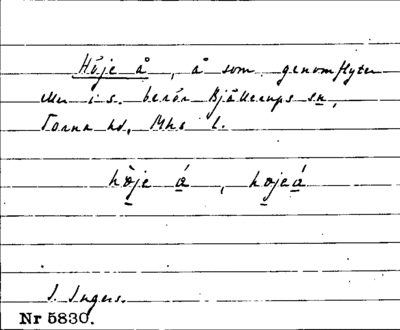 Höje å, å som genomflyter
eller i s. berör Bjällerups sn,
Torna hd, Mhs l.
høje å, højeå
I. Ingers.
Nr 5830.